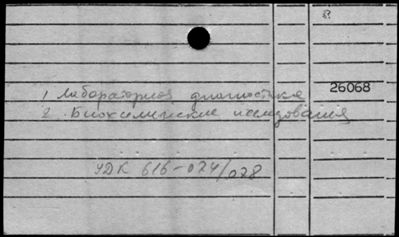 1. Лабораторная диагностика
26068
2. Биохимические исследования
УДК 616-074/078